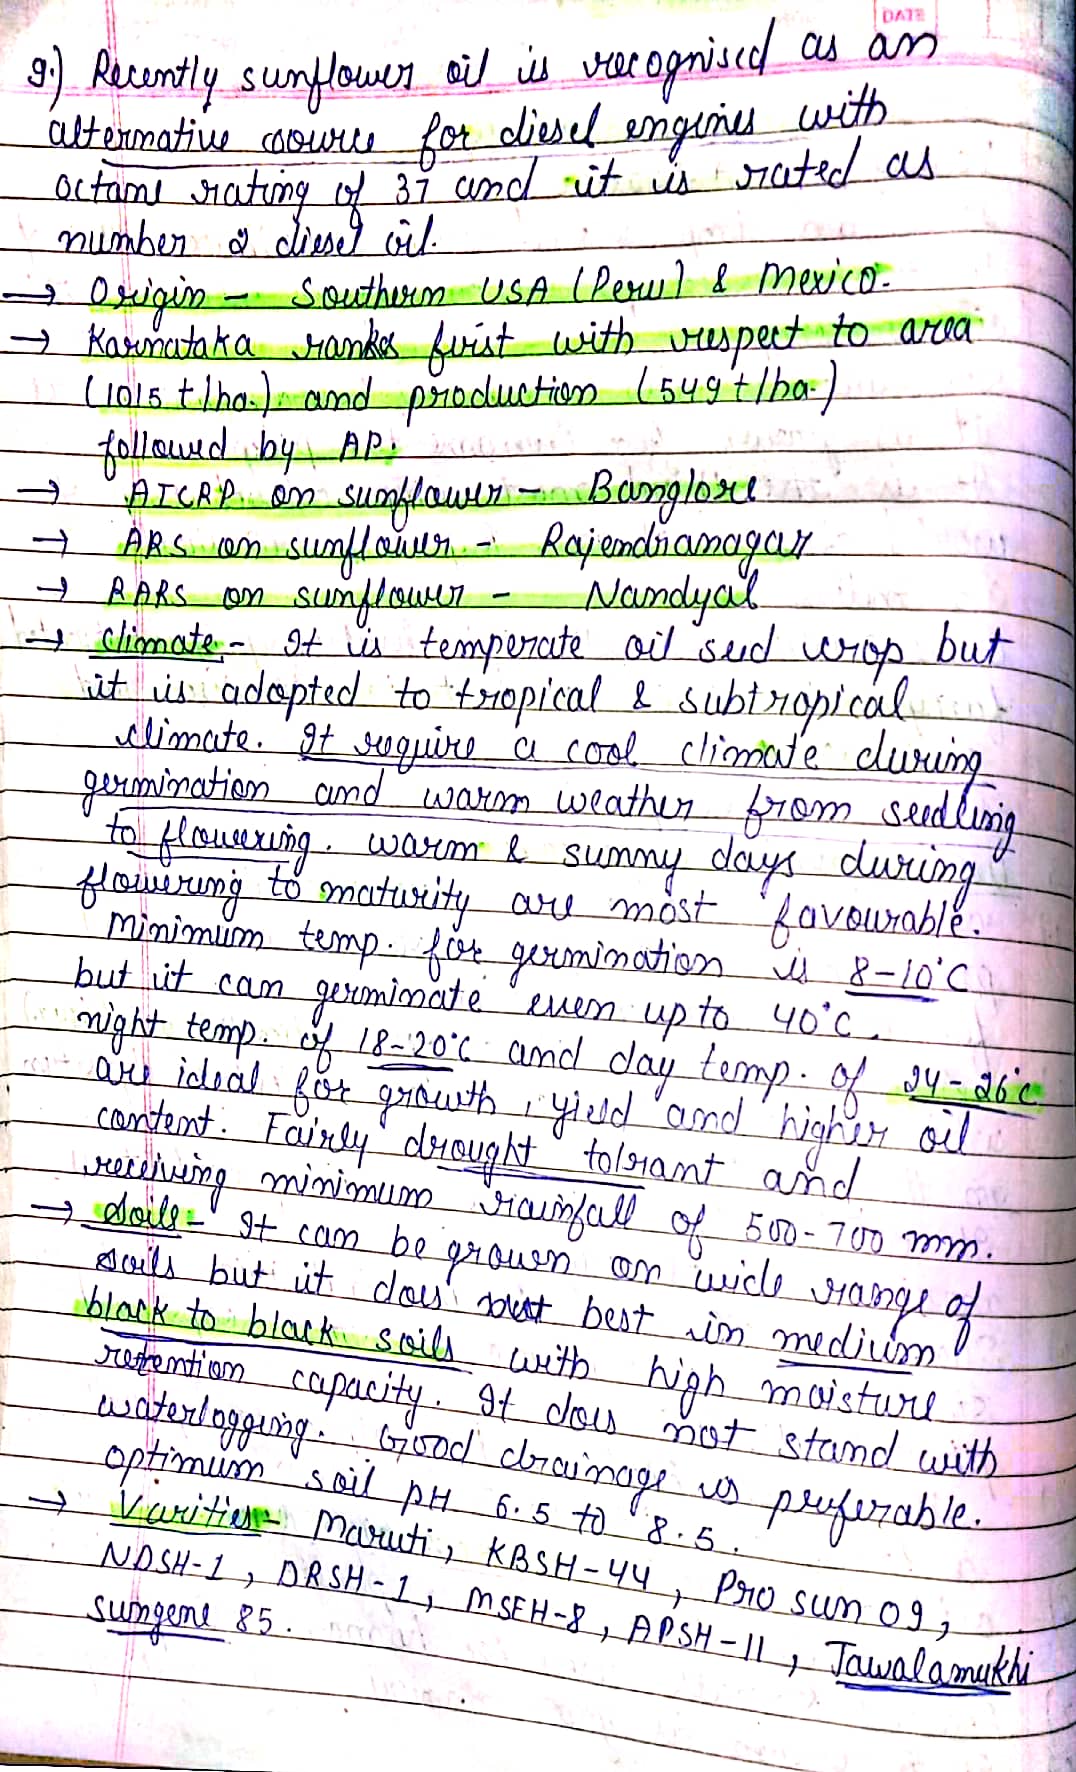 DATE
9.) Recently sunflower oil is recognised as an
alternative source for diesel engines with
octane rating of 37 and it is rated as
number 2 diesel oil.
→ Origin - Southern USA (Peru) & Mexico.
→ Karnataka ranks first with respect to area
(1015 t/ha.) and production (549 t/ha.)
followed by AP.
→ AICRP on sunflower - Banglore
→ ARS on sunflower - Rajendranagar
→ RARS on sunflower - Nandyal
→ Climate - It is temperate oil seed crop but
it is adopted to tropical & subtropical
climate. It require a cool climate during
germination and warm weather from seedling
to flowering. warm & sunny days during
flowering to maturity are most favourable.
Minimum temp. for germination is 8-10°C
but it can germinate even up to 40°C.
night temp. of 18-20°C and day temp. of 24-26°C
are ideal for growth, yield and higher oil
content. Fairly drought tolrant and
receiving minimum rainfall of 500-700 mm.
→ Soils - It can be grown on wide range of
soils but it does best in medium
black to black soils with high moisture
retention capacity. It does not stand with
waterlogging. Good drainage is preferable.
optimum soil pH 6.5 to 8.5.
→ Varities - Maruti, KBSH-44, Pro sun 09,
NDSH-1, DRSH-1, MSFH-8, APSH-11, Jawalamukhi
sungene 85.